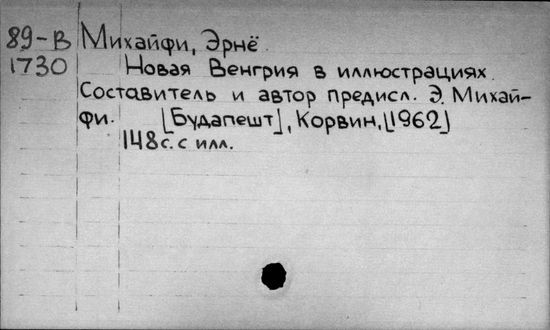 89-В Михайфи, Эрнё.
1730 Новая Венгрия в иллюстрациях.
Составитель и автор предисл. Э. Михай-
фи. [Будапешт], Корвин, [1962]
148 с. с илл.